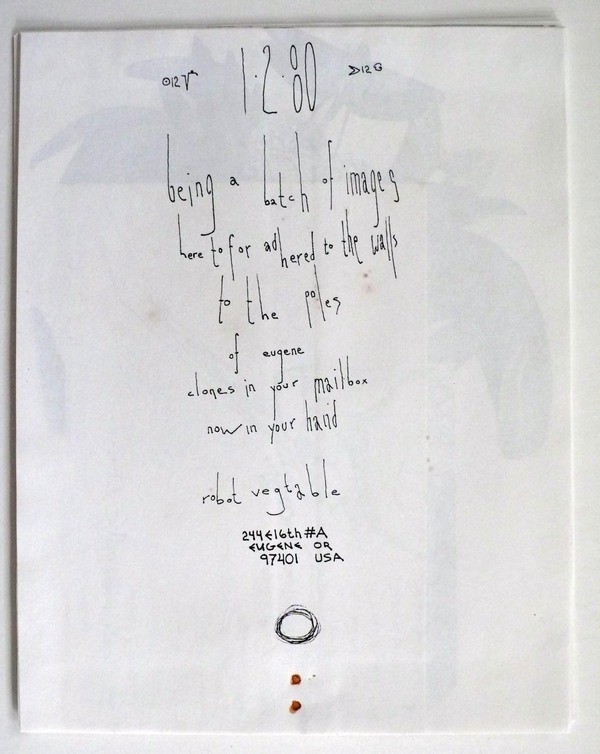 ⊙12♈ 1·2·80 ♐12
being a batch of images
here to for adhered to the walls
to the poles
of eugene
clones in your mailbox
now in your hand
robot vegtable
244 E 16th #A
EUGENE OR
97401 USA